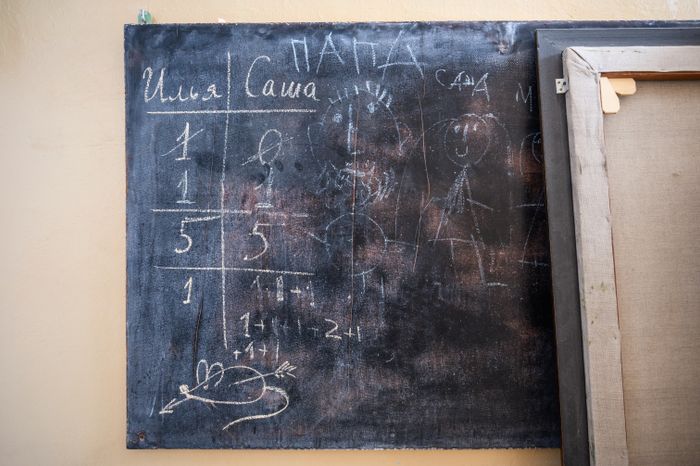 ПАПА
Илья Саша
САША
М
1 0
1 1
5 5
1 1+1+1
1+1+1+2+1
+1+1